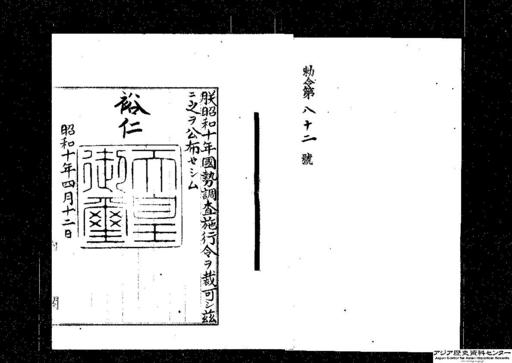 勅令第八十二號
朕昭和十年國勢調査施行令ヲ裁可シ茲
ニ之ヲ公布セシム
裕仁
天皇御璽
昭和十年四月十二日
アジア歴史資料センター
Japan Center for Asian Historical Records